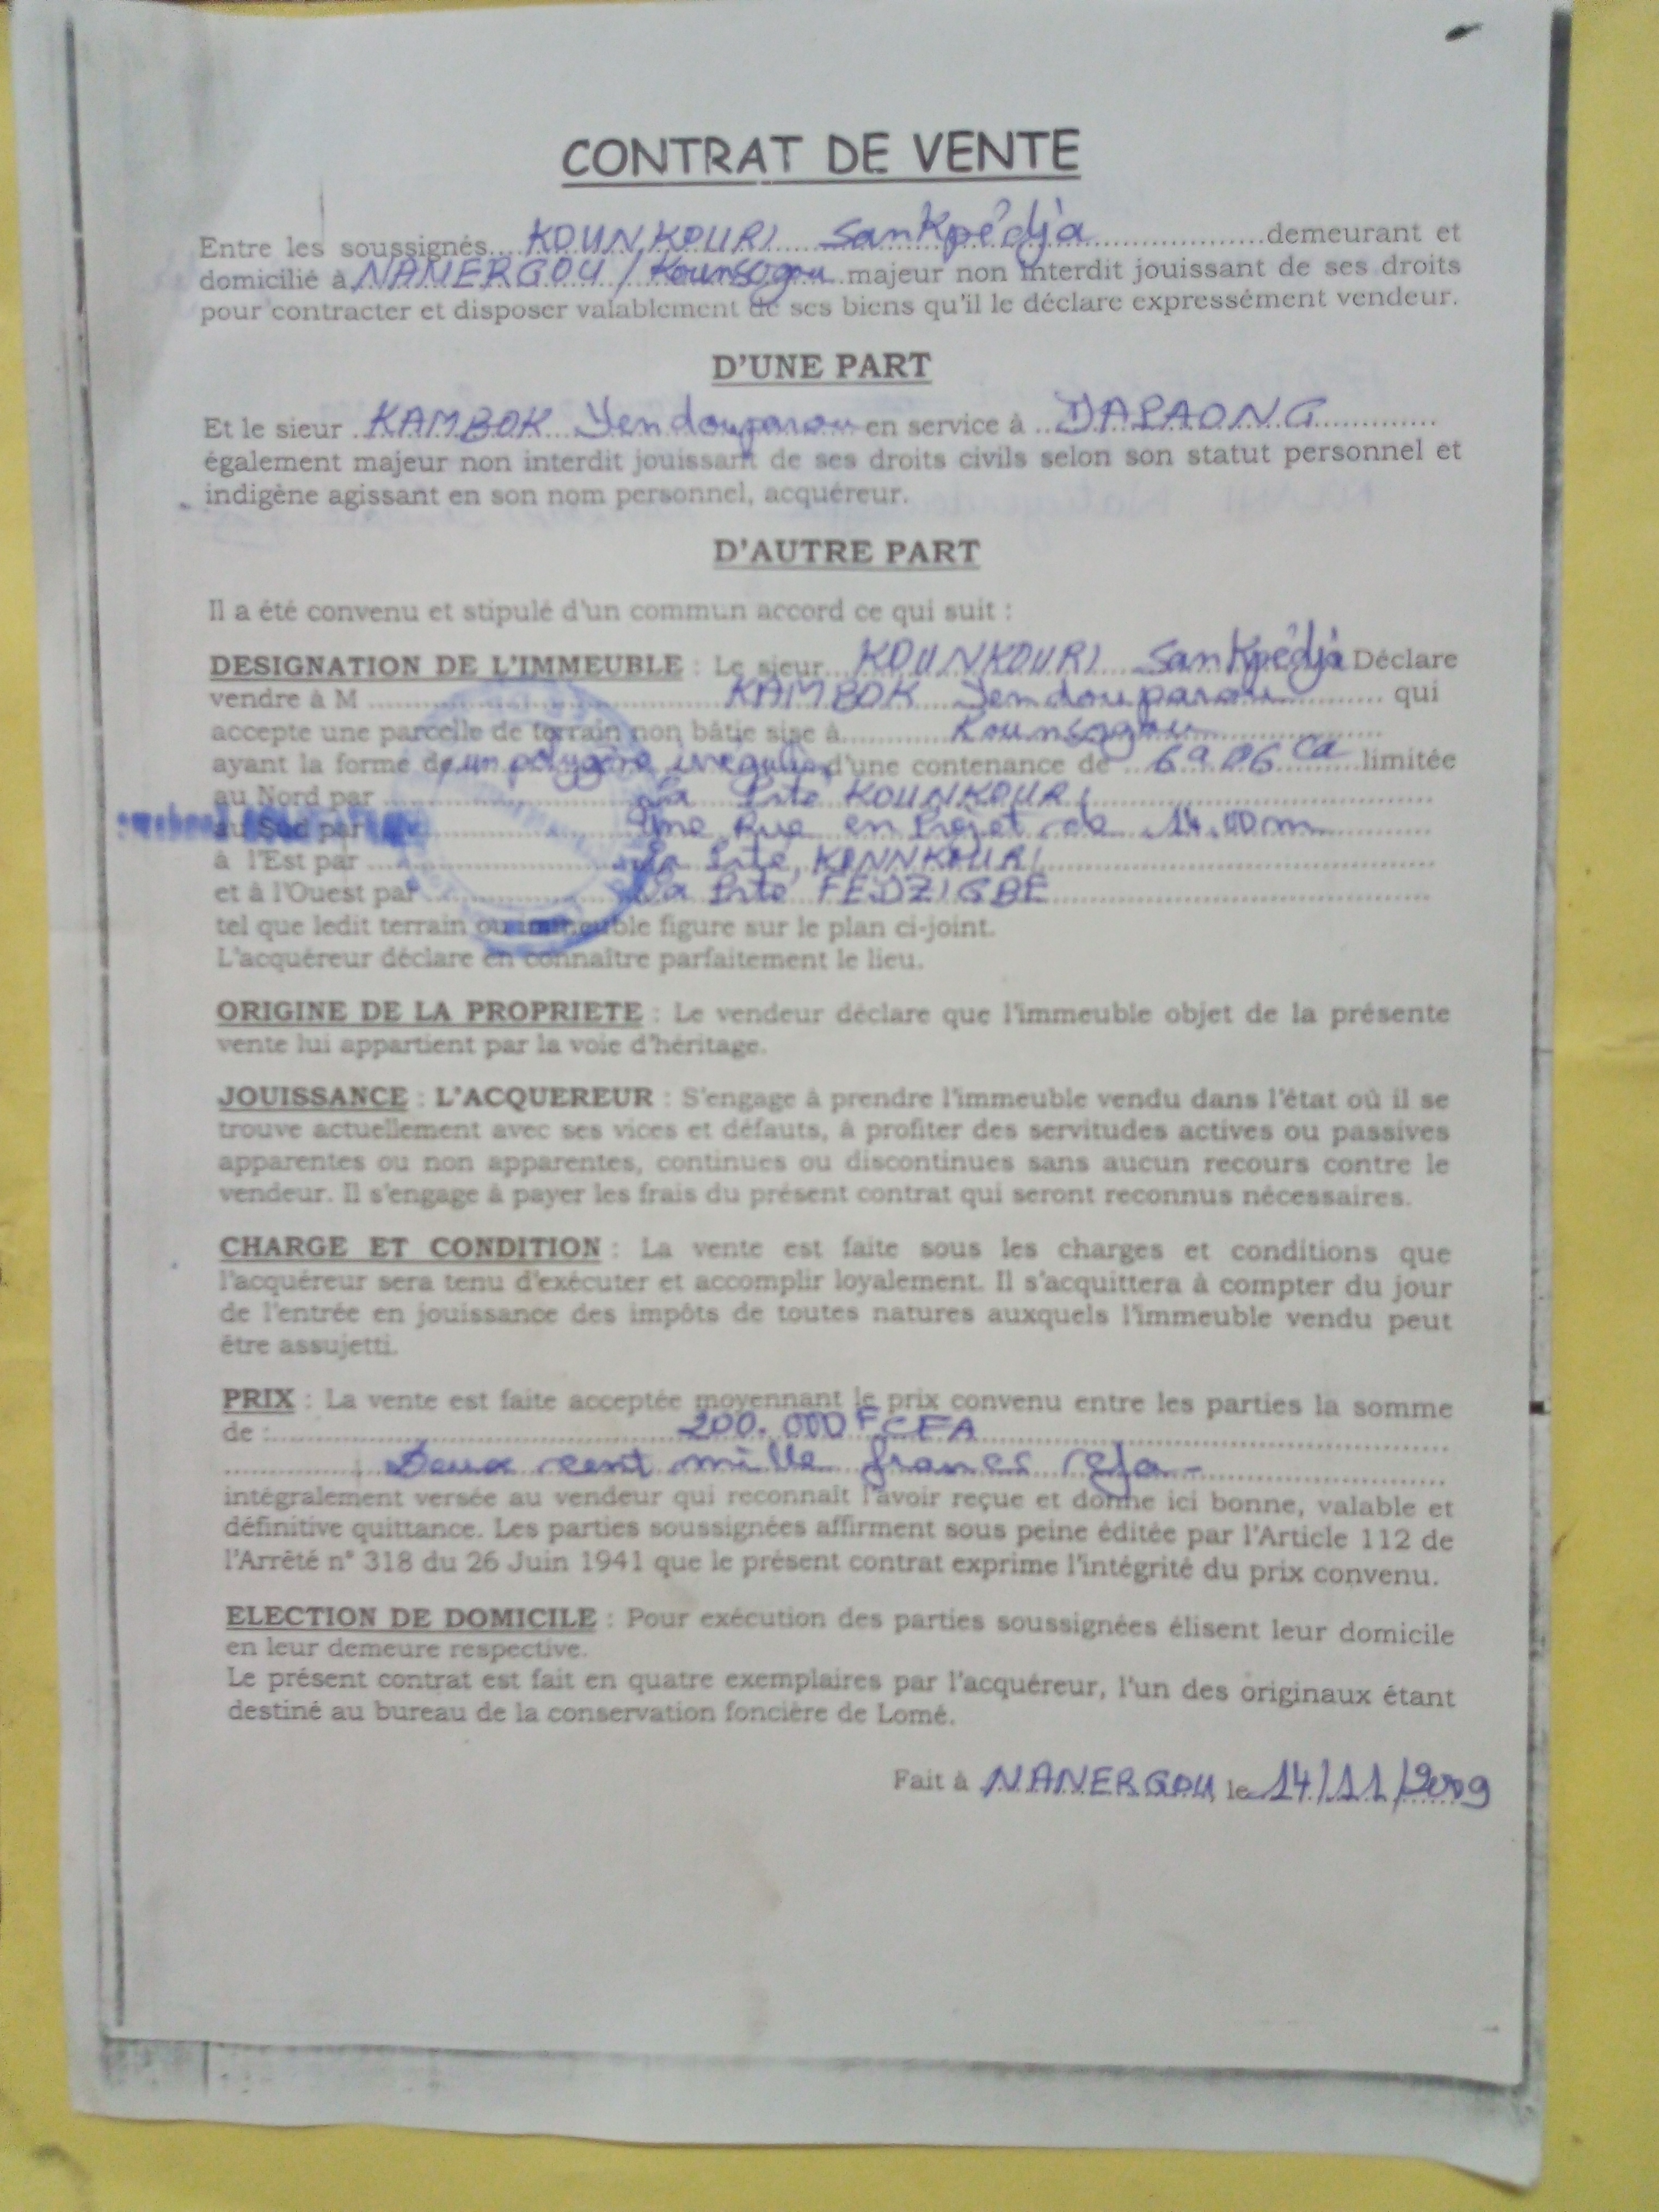 CONTRAT DE VENTE
Entre les soussignés....KOUNKOURI SanKpédja....................demeurant et
domicilié à NANERGOU / Kounsogou majeur non interdit jouissant de ses droits
pour contracter et disposer valablement de ses biens qu'il le déclare expressément vendeur.
D'UNE PART
Et le sieur KAMBOK Yendouparou en service à DAPAONG
également majeur non interdit jouissant de ses droits civils selon son statut personnel et
indigène agissant en son nom personnel, acquéreur.
D'AUTRE PART
Il a été convenu et stipulé d'un commun accord ce qui suit :
DESIGNATION DE L'IMMEUBLE : Le sieur KOUNKOURI SanKpédja Déclare
vendre à M KAMBOK Yendouparou qui
accepte une parcelle de terrain non bâtie sise à Kounsogou
ayant la forme d'un polygône irrégulier d'une contenance de 6a 06 ca limitée
au Nord par La Pité KOUNKOURI
au Sud par Une Rue en Projet de 14.00m
à l'Est par La Pité KONNKOURI
et à l'Ouest par La Pité FEDZIGBE
tel que ledit terrain ou immeuble figure sur le plan ci-joint.
L'acquéreur déclare en connaître parfaitement le lieu.
ORIGINE DE LA PROPRIETE : Le vendeur déclare que l'immeuble objet de la présente
vente lui appartient par la voie d'héritage.
JOUISSANCE : L'ACQUEREUR : S'engage à prendre l'immeuble vendu dans l'état où il se
trouve actuellement avec ses vices et défauts, à profiter des servitudes actives ou passives
apparentes ou non apparentes, continues ou discontinues sans aucun recours contre le
vendeur. Il s'engage à payer les frais du présent contrat qui seront reconnus nécessaires.
CHARGE ET CONDITION : La vente est faite sous les charges et conditions que
l'acquéreur sera tenu d'exécuter et accomplir loyalement. Il s'acquittera à compter du jour
de l'entrée en jouissance des impôts de toutes natures auxquels l'immeuble vendu peut
être assujetti.
PRIX : La vente est faite acceptée moyennant le prix convenu entre les parties la somme
de : 200.000 F CFA
Deux cent mille francs cfa -
intégralement versée au vendeur qui reconnaît l'avoir reçue et donne ici bonne, valable et
définitive quittance. Les parties soussignées affirment sous peine éditée par l'Article 112 de
l'Arrêté n° 318 du 26 Juin 1941 que le présent contrat exprime l'intégrité du prix convenu.
ELECTION DE DOMICILE : Pour exécution des parties soussignées élisent leur domicile
en leur demeure respective.
Le présent contrat est fait en quatre exemplaires par l'acquéreur, l'un des originaux étant
destiné au bureau de la conservation foncière de Lomé.
Fait à NANERGOU, le 14/11/2009